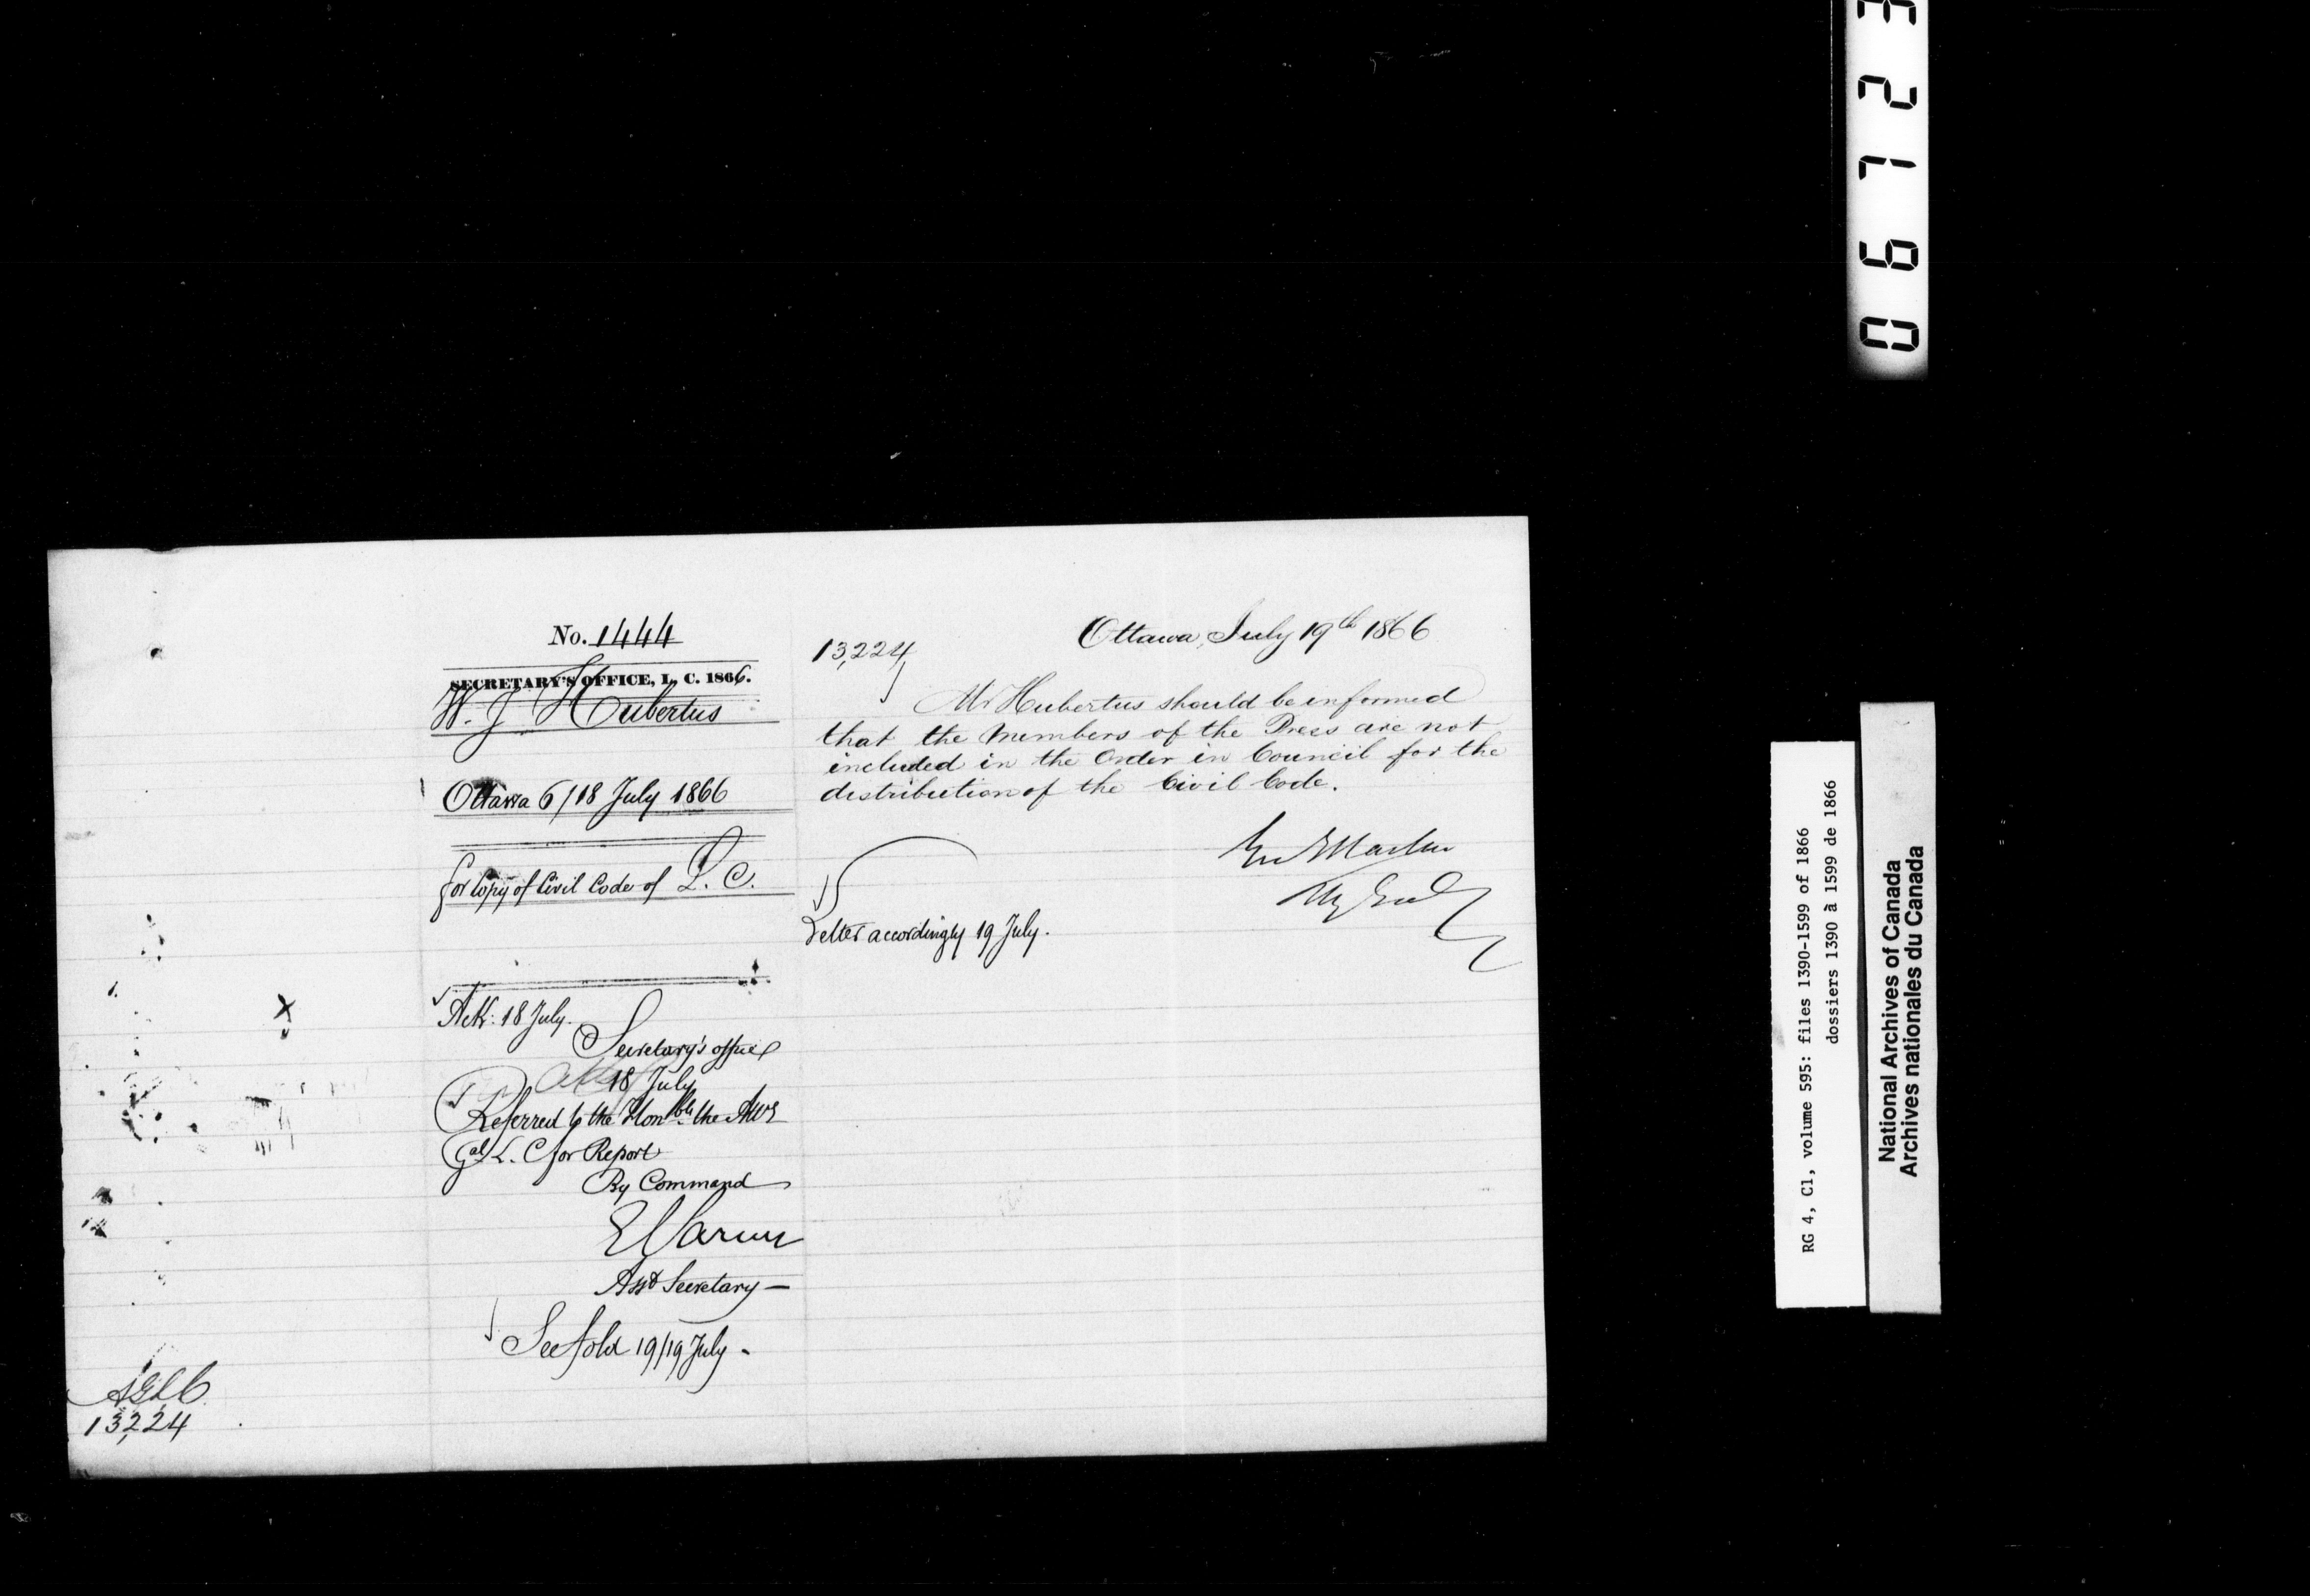 No. 1444
SECRETARY'S OFFICE, L. C. 1866.
W. J Hubertus
Ottawa 6/18 July 1866
for Copy of Civil Code of L. C.
Ack: 18 July.
Secretary's office
18 July
Referred to the Honble. the Atty
Gal L. C for Report
By Command
Asst Secretary —
See fold 19/19 July -
AGLC
13,224
13,224
Ottawa, July 19th 1866
Mr Hubertus should be informed
that the Members of the Press are not
included in the Order in Council for the
distribution of the Civil Code.
Letter accordingly 19 July.
0 6 7 2 3
RG 4, C1, volume 595: files 1390-1599 of 1866
dossiers 1390 à 1599 de 1866
National Archives of Canada
Archives nationales du Canada